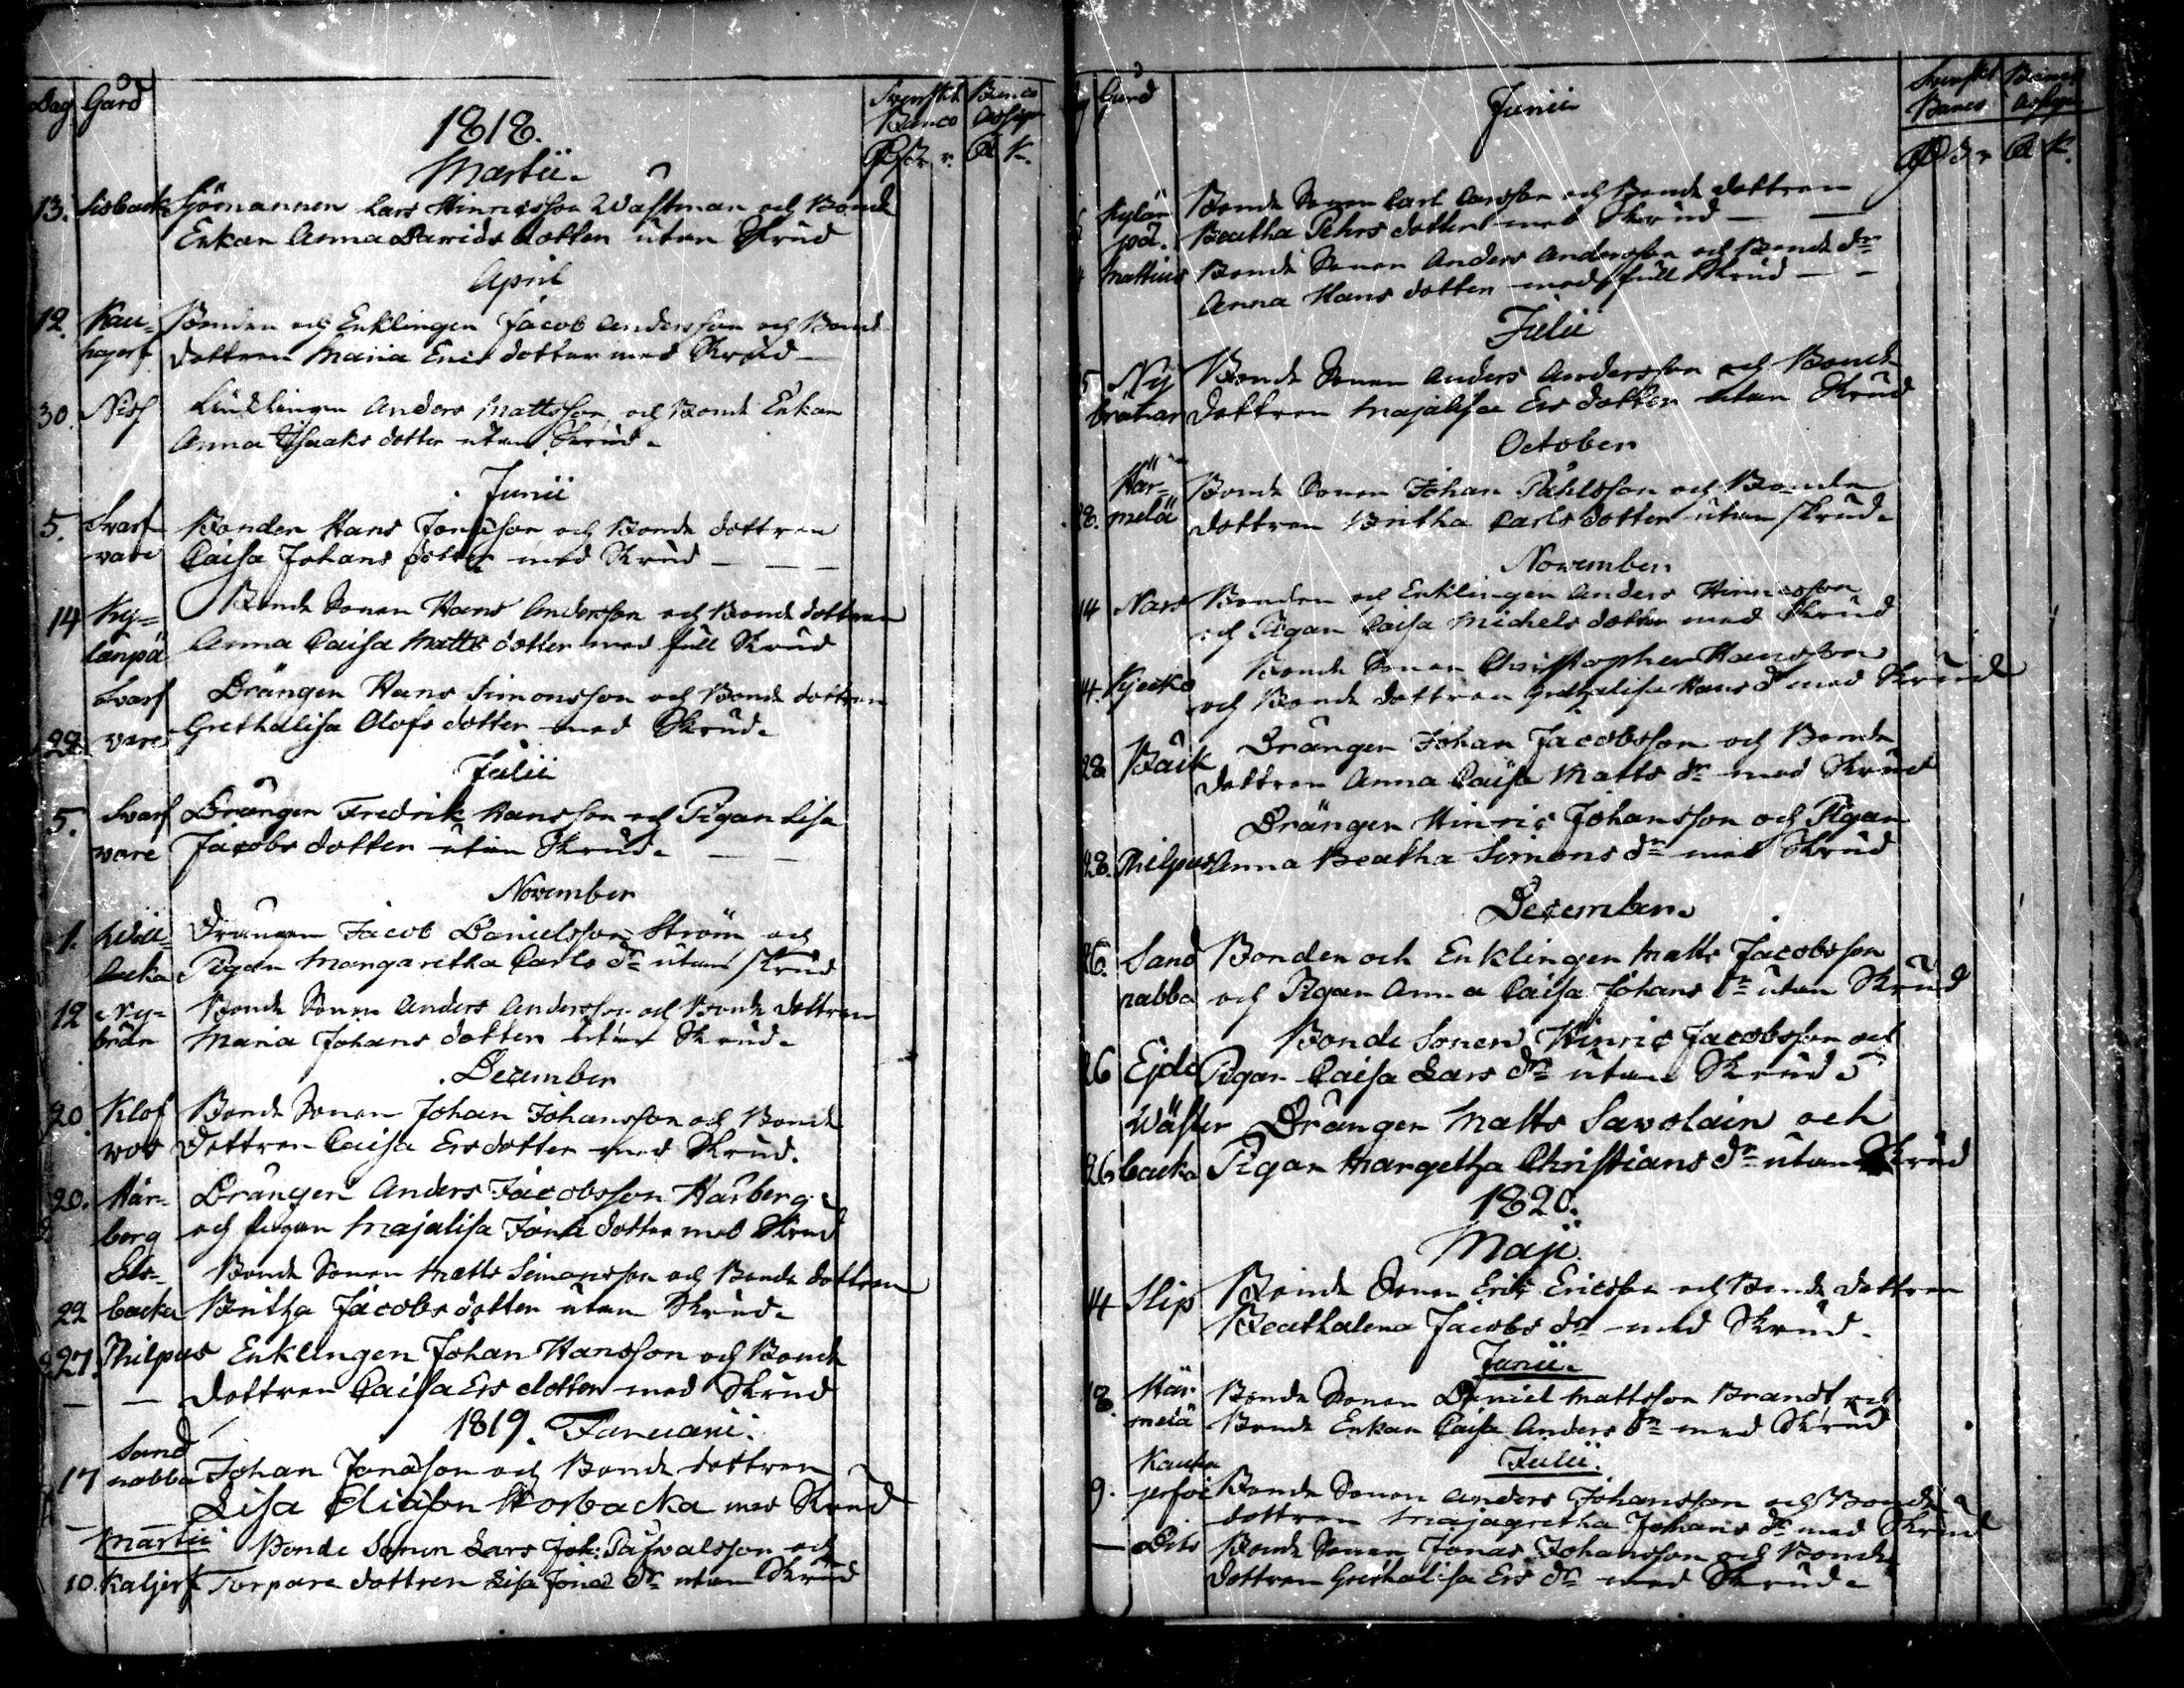 Dag Gård Svenskt Banco
Banco Assign
1818.
Martii.
13. Lisbacka Sjömannen Lars Hinricsson Wästman och Bonde
Enkan Anna Davids dotter utan Skrud
April
12. Kau= Bonden och Enklingen Jacob Andersson och Bonde
hajerf dottren Maria Ers dotter med Skrud
30. Nis Anders Mattsson och Bonde Enkan
Anna Isaaks dotter utan Skrud.
Junii
5. Svarf Bonden Hans Jonasson och Bonde dottren
vare Caisa Johans dotter med Skrud
14 Ky= Bonde Sonen Hans Andersson och Bonde dottren
länpä Anna Caisa Matts dotter med full Skrud
Svarf Drängen Hans Simonsson och Bonde dottren
28. vare Grethalisa Olofs dotter med Skrud.
Julii
5. Svarf Drängen Fredrik Hansson och Pigan Lisa
vare Jacobs dotter utan Skrud.
November
1. Drängen Jacob Danielsson Ström och
backa Pigan Margaretha Carls dr utan skrud
12 Ny= Bonde Sonen Anders Andersson och Bonde dottren
brån Maria Johans dotter utan Skrud.
December
20. Klof Bonde Sonen Johan Johansson och Bonde
vos Dottren Caisa Ersdotter med Skrud.
20. Här= Drängen Anders Jacobsson Harberg
berg och pigan Majalisa Jona dotter med Skrud
Bonde Sonen Matts Simonsson och Bonde dottren
29 backa Britha Jacobs dotter utan Skrud.
27. Philpus Enklingen Johan Hansson och Bonde
dottren Caisa Ers dotter med Skrud
1819. Januarii.
Sand
17 nabba Johan Jonasson och Bonde dottren
Lisa Eliason Storbacka med Skrud
Martii Bonde Sonen Lars Joh: Påfvalsson och
10. Kaljerf Torpare dottren Lisa Jonas dr utan Skrud
Gård Svenskt Banco
Banco Assign
Junii
Kylän Bonde Sonen Carl Carlsson och Bonde dottren
pä. Beatha Pehrs dotter med Skrud
Mattius Bonde Sonen Anders Andersson och Bonde dr
Anna Hans dotter med full Skrud
Julii
5 Ny Bonde Sonen Anders Andersson och Bonde
brånar Dottren Majalisa Ers dotter utan Skrud
October
Här= Bonde Sonen Johan Påhlsson och Bonde
28. mälä dottren Britha Carls dotter utan skrud.
November
14 Nars Bonden och Enklingen Anders Hinricsson
och Pigan Caisa Michels dotter med Skrud
14. Bonde Sonen Christopher Hansson
och Bonde dottren Grethalisa Hans dr med Skrud
28 Bäck Drängen Johan Jacobsson och Bonde
dottren Anna Caisa Matts dr med Skrud
Drängen Hinric Johansson och Pigan
28. Philpus Anna Beatha Simons dr med Skrud
December.
26. Sand Bonden och Enklingen Matts Jacobsson
nabba och Pigan Anna Caisa Johans dr utan Skrud
Bonde Sonen Hinric Jacobsson och
26 Ejde Pigan Caisa Lars dr utan Skrud
Wäster Drängen Matts Savolain och
26 backa Pigan Margetha Christians dr utan Skrud
1820.
Maji.
14 Slip Bonde Sonen Eric Ericsson och Bonde dottren
Beathalena Jacobs dr med Skrud.
Junii.
18. Här= Bonde Sonen Daniel Mattsson Brandt och
mälä Bonde Enkan Caisa Anders dr med Skrud
Kauha Julii.
9. jerfvi Bonde Sonen Anders Johansson och Bonde
dottren Majagretha Johans dr med Skrud
— Dito Bonde Sonen Jonas Johansson och Bonde
Dottren Grethalisa Ers dr med Skrud.